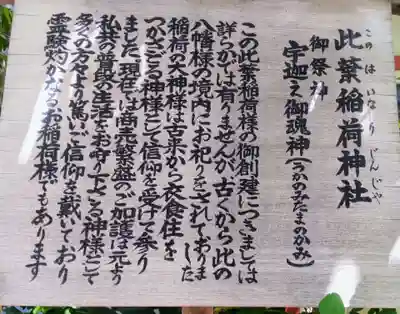 此葉稲荷神社
このはいなりじんじゃ
御祭神
宇迦之御魂神(うかのみたまのかみ)
この此葉稲荷様の御創建につきましては
詳らかは有りませんが、古くから此の
八幡様の境内にお祀りをされておりました
稲荷の大神様は古来から衣食住を
つかさどる神様として信仰を受けて参り
ました「現在」は商売繁盛のご加護は元より
私共の普段の生活をお守り下さる神様として
多くの方々より篤いご信仰を戴いており
霊験灼かなるお稲荷様でもあります